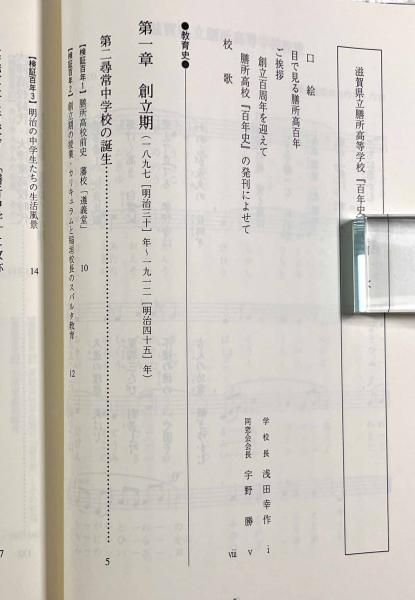 滋賀県立膳所高等学校『百年史
口絵
目で見る膳所高百年
ご挨拶
創立百周年を迎えて 学校長 浅田幸作 i
膳所高校『百年史』の発刊によせて 同窓会会長 宇野 勝 v
校歌 viii
●教育史●
第一章 創立期(一八九七[明治三十]年~一九一二[明治四十五]年)
第二尋常中学校の誕生 5
【検証百年1】膳所高校前史 藩校「遵義堂」 10
【検証百年2】創立期の授業・カリキュラムと稲垣校長のスパルタ教育 12
【検証百年3】明治の中学生たちの生活風景 14